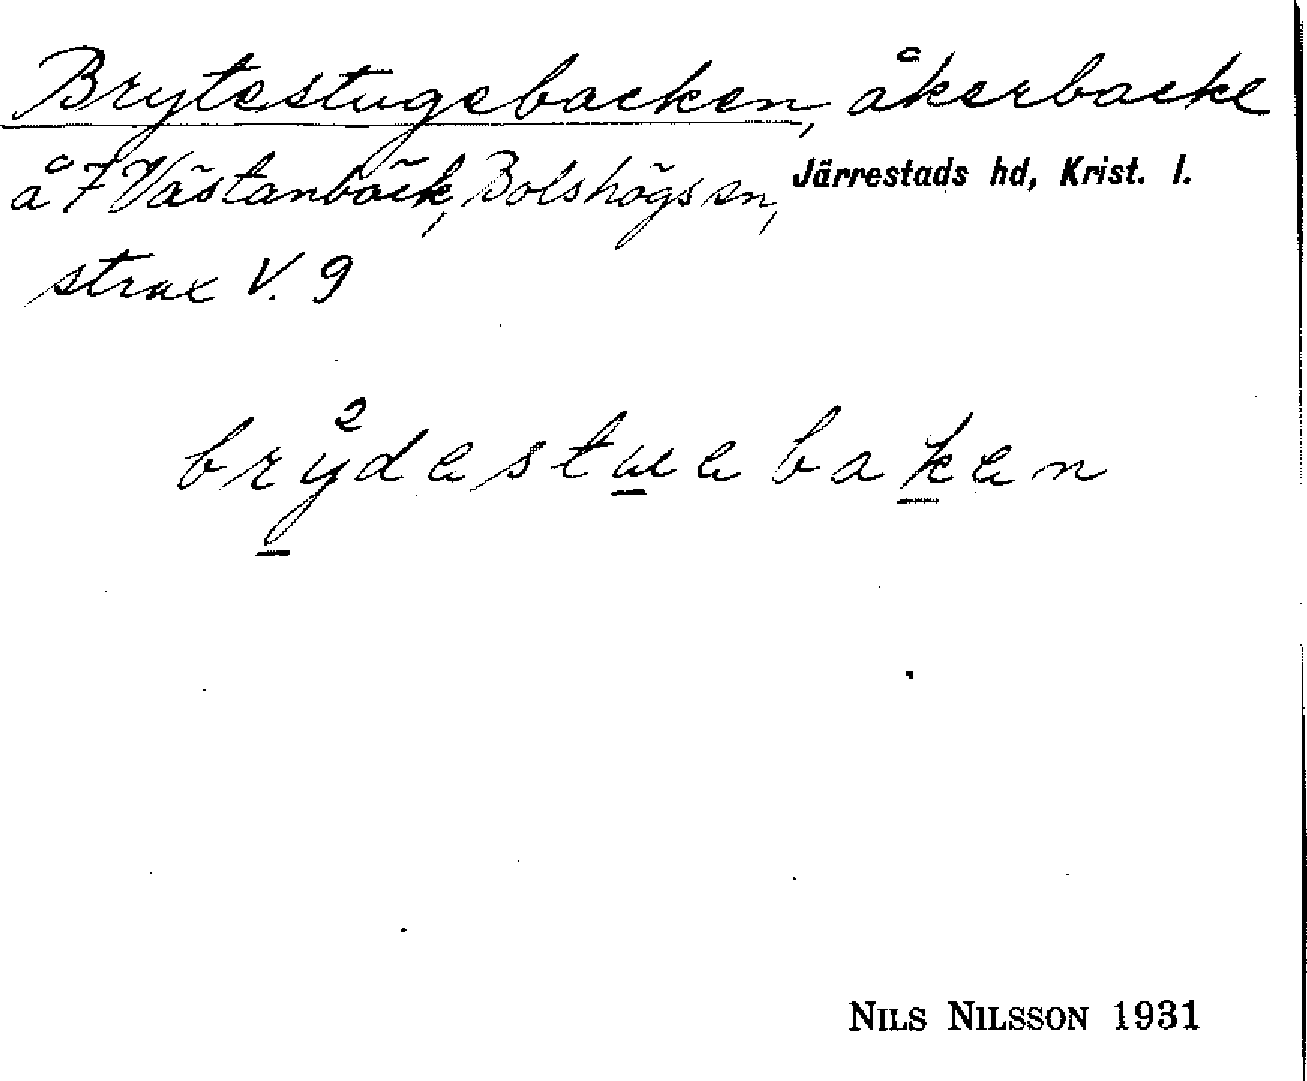 Brytestugebacken, åkerbacke
å 7 Västanbäck, Bolshögs sn, Järrestads hd, Krist. l.
strax V. 9
brydestuebaken
NILS NILSSON 1931